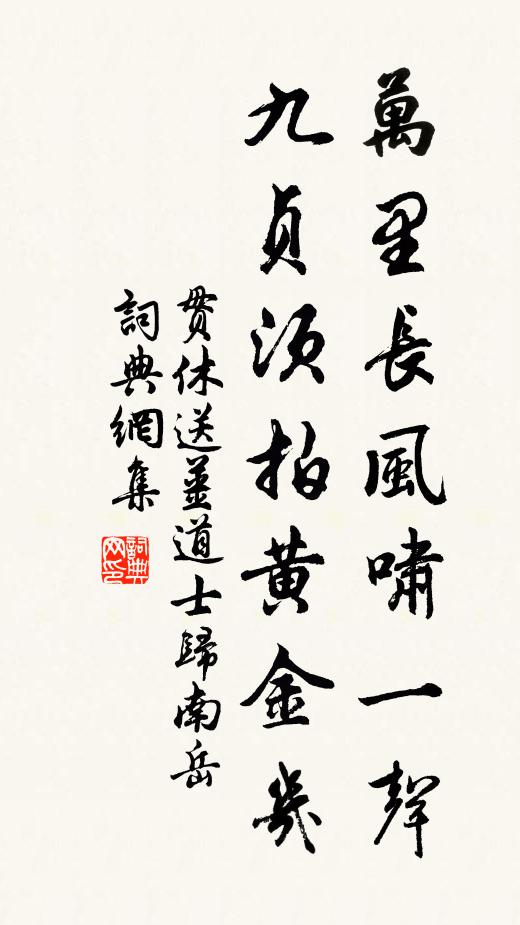 萬里長風嘯一聲
九貞須拍黄金幾
貫休送薑道士歸南岳
詞典網集
詞典
网印